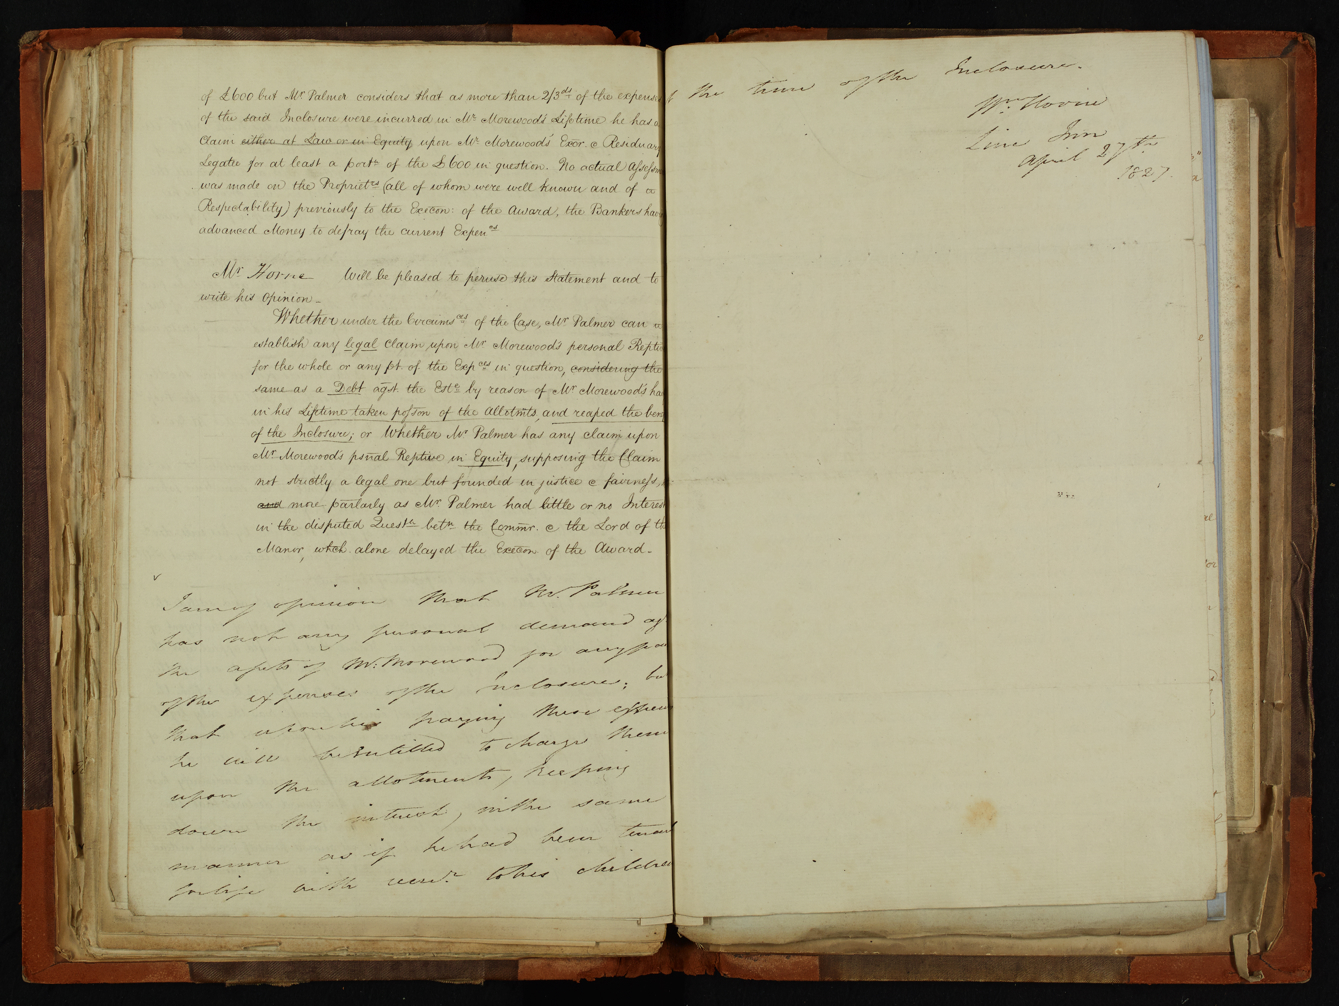 of £600 but Mr Palmer considers that as more than 2/3ds of the expenses
of the said Inclosure were incurred in Mr Morewood's Lifetime he has a
Claim either at Law or in Equity upon Mr Morewood's Exor. & Residuary
Legatee for at least a portn of the £600 in question. No actual Assessm
was made on the Propriets (all of whom were well known and of
Respectability) previously to the Execon: of the Award, the Bankers have
advanced Money to defray the current Expences
Mr Horne Will be pleased to peruse this Statement and to
write his Opinion_
Whether under the Circumses of the Case, Mr Palmer can
establish any legal Claim upon Mr Morewood's personal Reptive
for the whole or any pt of the Expces in question, considering the
same as a Debt agst the Este by reason of Mr Morewood's ha
in his Lifetime taken posson of the Allotmts, and reaped the ben
of the Inclosure; or Whether Mr Palmer has any claim upon
Mr Morewood's psnal Reptive in Equity, supposing the Claim
not strictly a legal one but founded in justice & fairness,
and more parlarly as Mr Palmer had little or no Interest
in the disputed Questn betn the Commr. & the Lord of the
Manor, which alone delayed the Execon of the Award.
I am of opinion that Mr. Palmer
has not any personal demand agt
the assets of Mr. Morewood for any par
of the expenses of the Inclosure; but
that upon his paying these expenses
he will be entitled to charge them
upon the allotments, keeping
down the interest, in the same
manner as if he had been tenant
for life with remr. to his children
at the time of the Inclosure.
Wm Horne
Linc Inn
April 27th
1827.